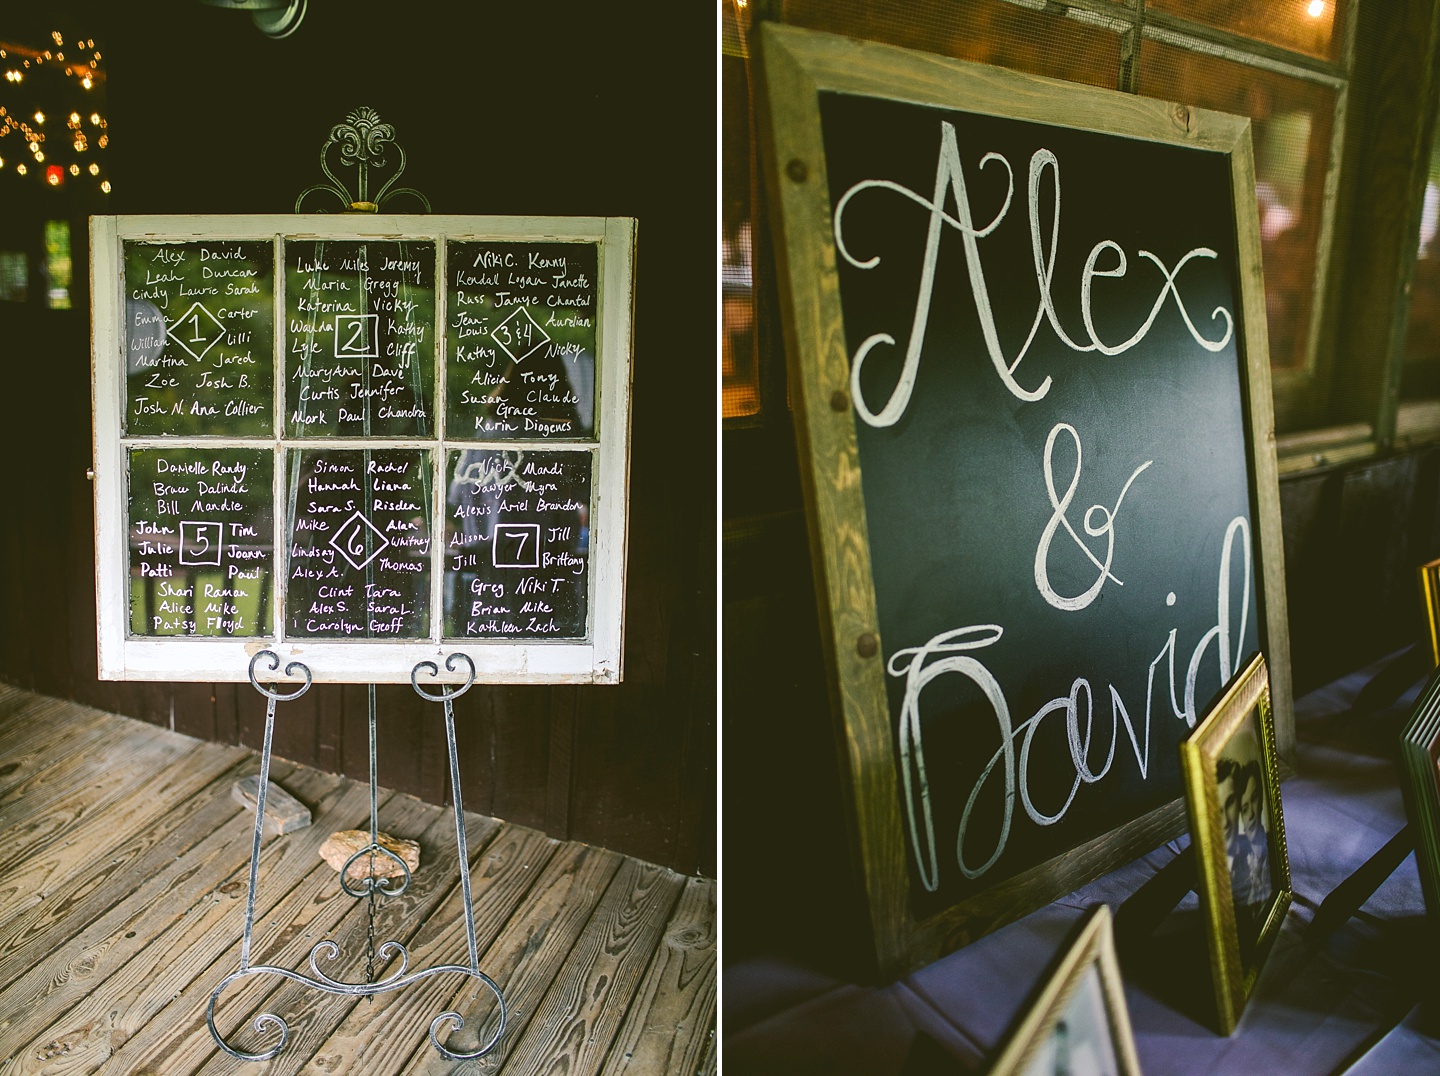 Alex David
Leah Duncan
Cindy Laurie Sarah
Emma Carter
1
William Lilli
Martina Jared
Zoe Josh B.
Josh N. Ana Collier
Luke Miles Jeremy
Maria Gregg
Katerina Vicky
Wauna Kathy
2
Lyle Cliff
MaryAnn Dave
Curtis Jennifer
Mark Paul Chandra
Niki C. Kenny
Kendall Logan Janette
Russ Jamye Chantal
Jean-Louis Aurelian
3 & 4
Kathy Nicky
Alicia Tony
Susan Claude
Grace
Karin Diogenes
Danielle Randy
Bruce Dalinda
Bill Mandie
John Tim
5
Julie Joann
Patti Paul
Shari Raman
Alice Mike
Patsy Floyd
Simon Rachel
Hannah Liana
Sara S. Risden
Mike Alan
6
Whitney
Lindsay Thomas
Alex A.
Clint Tara
Alex S. Sara L.
Carolyn Geoff
Nick Mandi
Sawyer Myra
Alexis Ariel Brandon
Alison Jill
7
Jill Brittany
Greg Niki T.
Brian Mike
Kathleen Zach
Alex
&
David